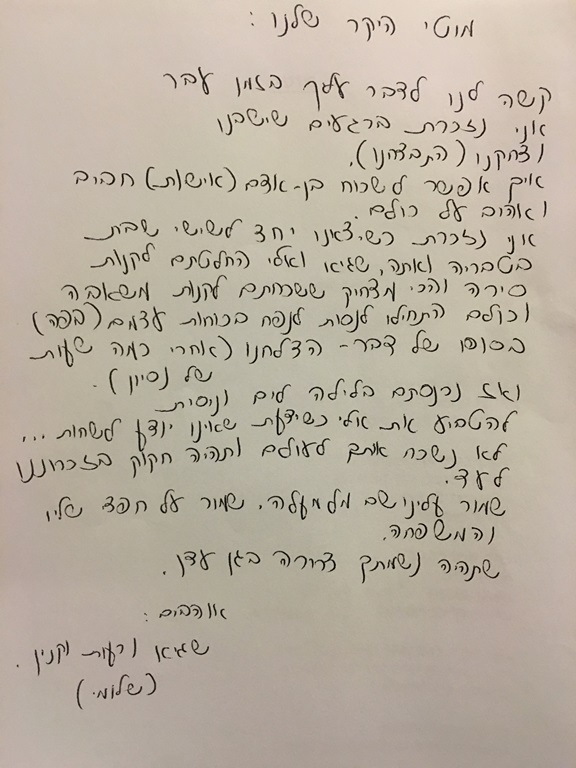 מוטי היקר שלנו :
קשה לנו לדבר עלך בזמן עבר
אני נזכרת ברגעים שישבנו
וצחקנו (התבדחנו).
איך אפשר לשכוח בן-אדם (אישות) חביב
ואהוב על כולם.
אני נזכרת כשיצאנו יחד לשישי שבת
בטבריה ואתה, שגיא ואלי החלטתם לקנות
סירה והכי מצחיק ששכחתם לקנות משאבה
וכולם התחילו לנסות לנפח בכוחות עצמם (בפה)
בסופו של דבר- הצלחנו (אחרי כמה שעות
של נסיון).
ואז נכנסתם בלילה לים וניסית
להטביע את אלי כשידעת שאינו יודע לשחות...
לא נשכח אותך לעולם ותהיה חקוק בזכרוננו
לעד.
שמור עלינו שם מלמעלה, שמור על חפצ שליו
והמשפחה.
שתהיה נשמתך צרורה בגן עדן.
אוהבים :
שגיא ורעות וקנין.
(שלומי)